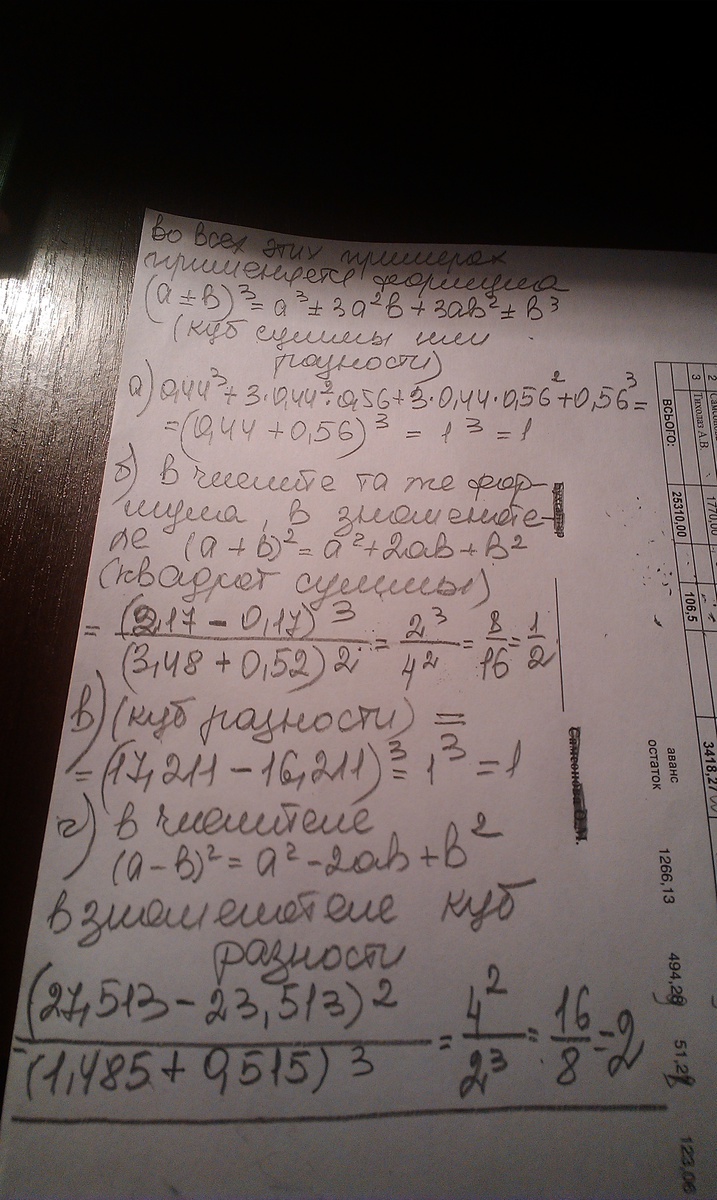 Во всех этих примерах
применяется формула
(a ± b)³ = a³ ± 3a²b + 3ab² ± b³
(куб суммы или
разности)
а) 0,44³ + 3·0,44²·0,56 + 3·0,44·0,56² + 0,56³ =
= (0,44 + 0,56)³ = 1³ = 1
б) в числите та же фор-
мула, в знаменате-
ле (a + b)² = a² + 2ab + b²
(квадрат суммы)
= (2,17 - 0,17)³ / (3,48 + 0,52)² = 2³ / 4² = 8/16 = 1/2
в) (куб разности) =
= (17,211 - 16,211)³ = 1³ = 1
г) в числителе
(a - b)² = a² - 2ab + b²
в знаменателе куб
разности
= (27,513 - 23,513)² / (1,485 + 0,515)³ = 4² / 2³ = 16/8 = 2
2
3 Тихолаз А.В.
ВСЕГО:
1770,00
25310,00
106,5
3418,27
аванс
остаток
1266,13
494,28
51,28
123,06